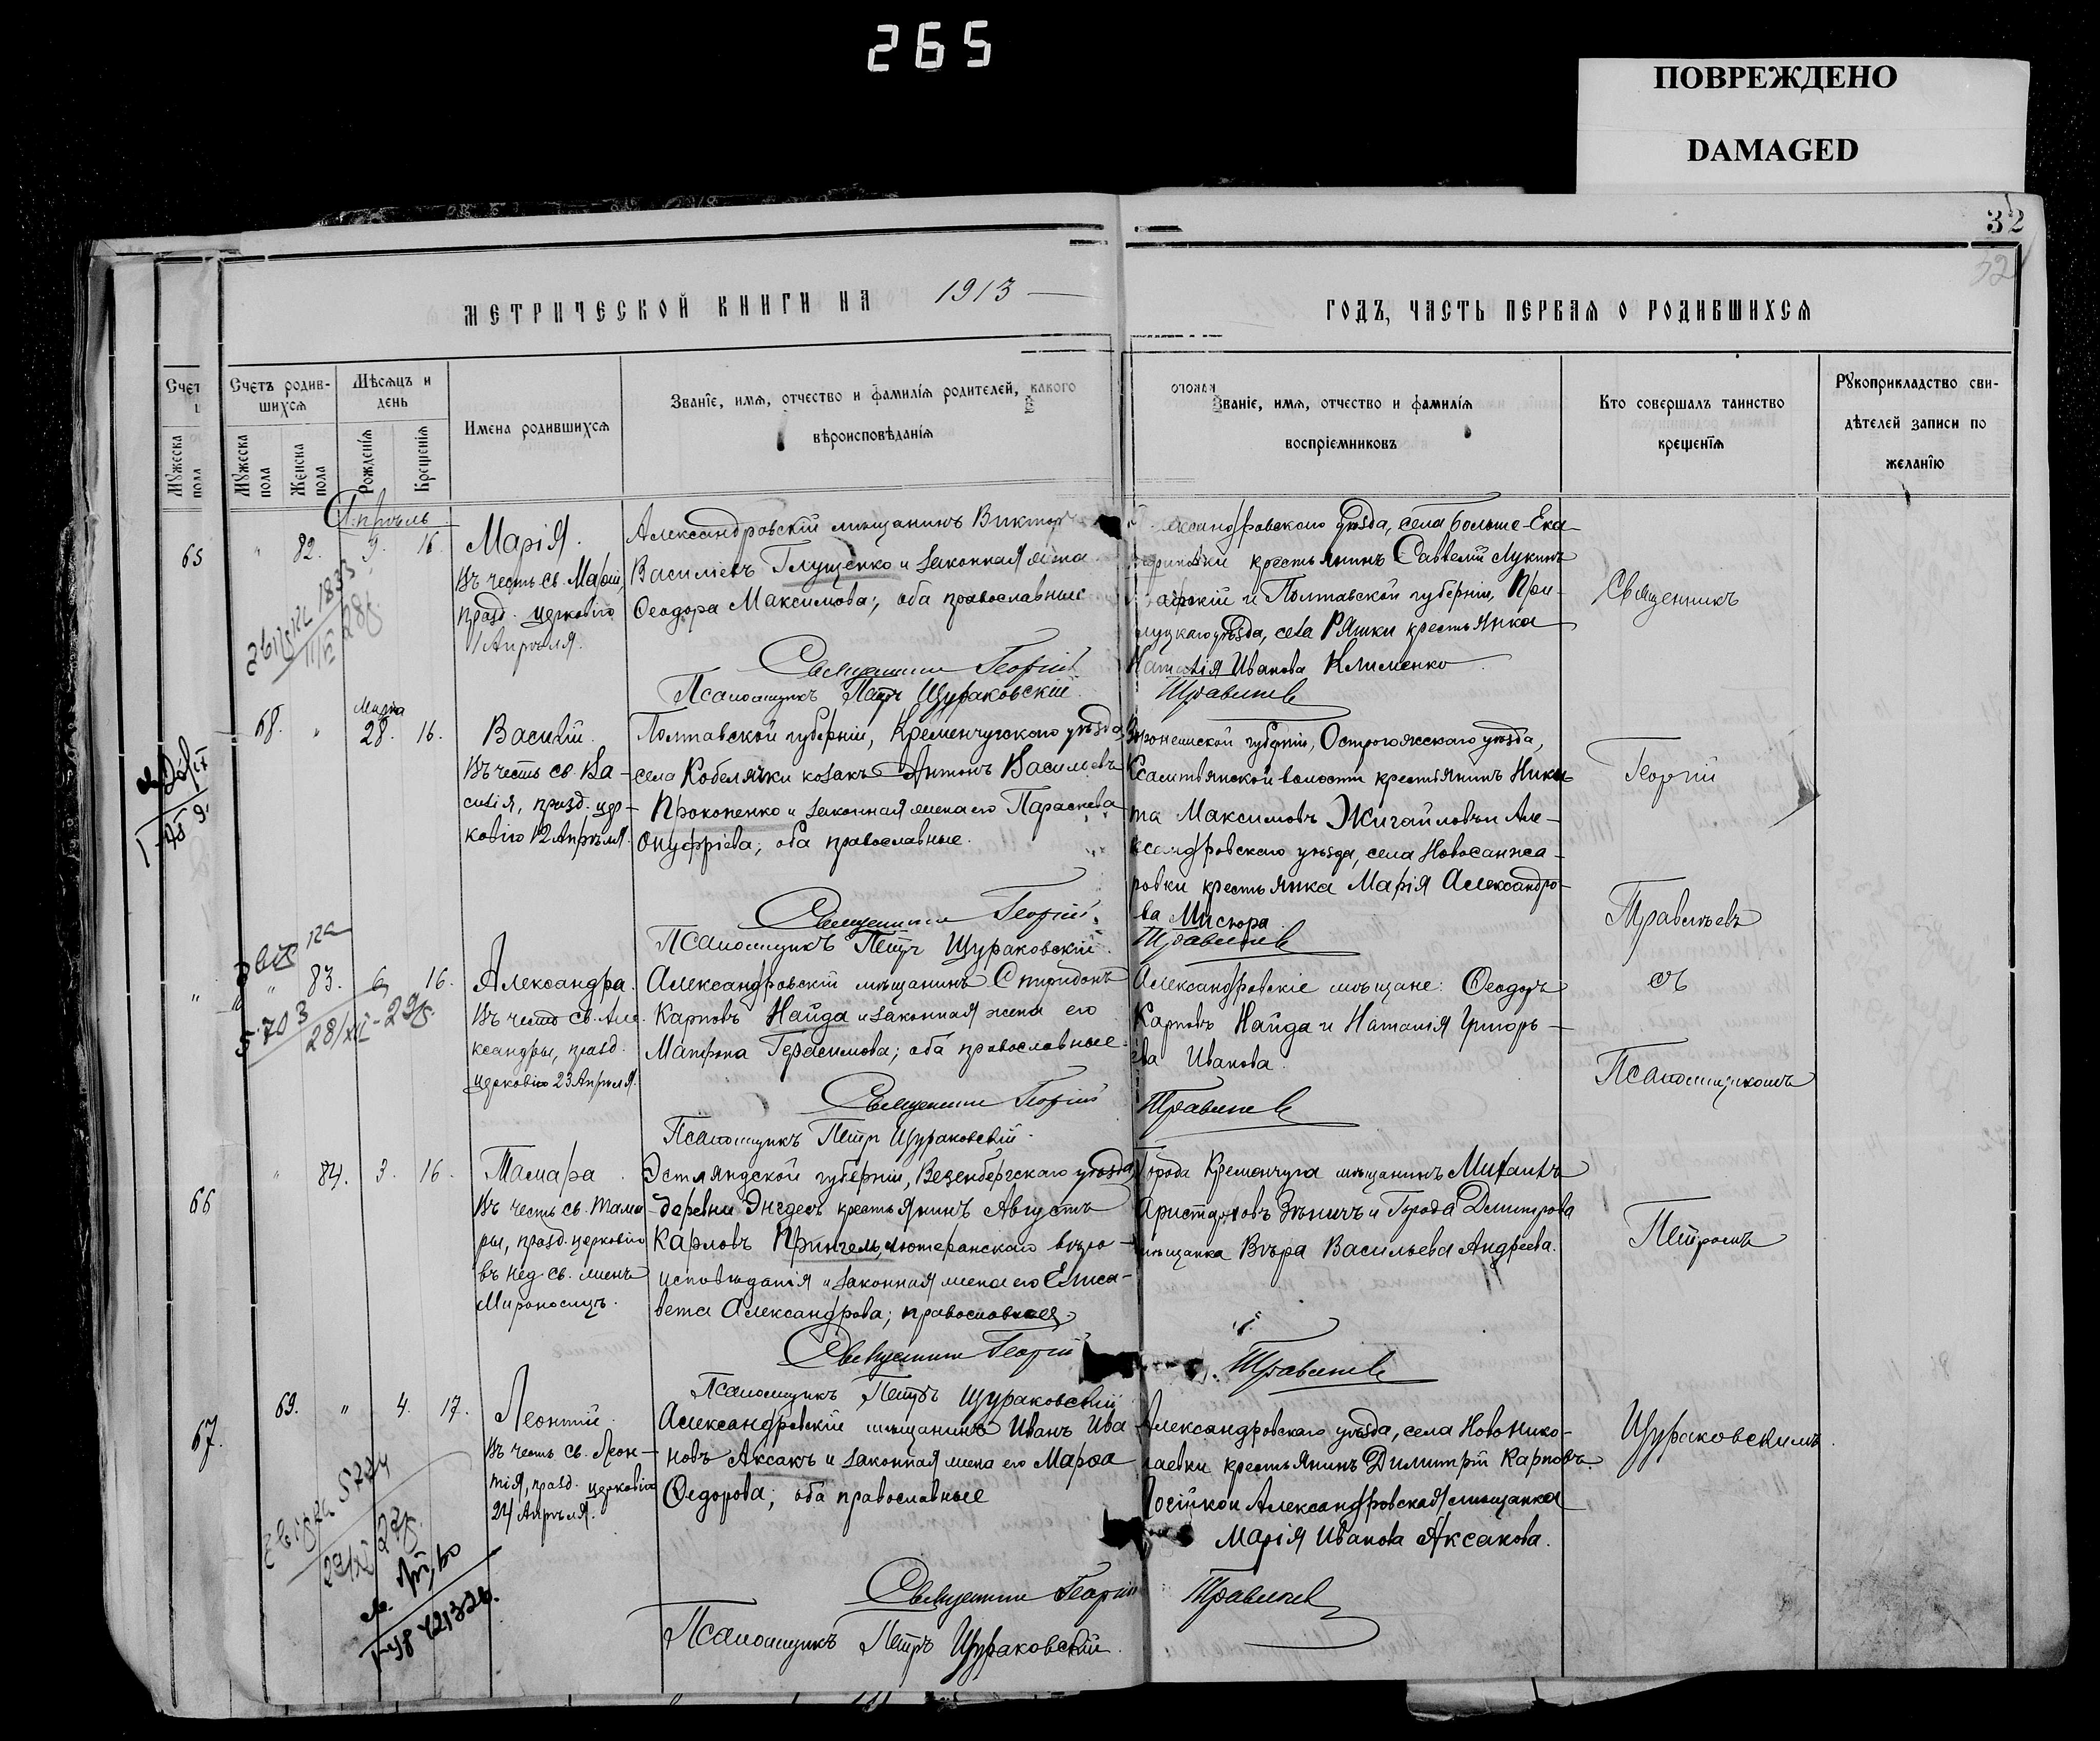 265
ПОВРЕЖДЕНО
DAMAGED
32
32
МЕТРИЧЕСКОЙ КНИГИ НА 1913
ГОДЪ, ЧАСТЬ ПЕРВАЯ О РОДИВШИХСЯ
Счет
Мужеска пола
Счетъ родив-
шихся
Мужеска пола
Женска пола
Мѣсяцъ и
день
Рожденія
Крещенія
Имена родившихся
Званіе, имя, отчество и фамилія родителей, какого
вѣроисповѣданія
Званіе, имя, отчество и фамилія
воспріемниковъ
Кто совершалъ таинство
крещенія
Рукоприкладство сви-
дѣтелей записи по
желанію
Апрѣль
65
" 82. 9. 16.
Марія.
Въ честь св. Маріи,
празд. церковію
1 Апрѣля.
Александровскій мѣщанинъ Викторъ
Василіевъ Глущенко и законная жена
Ѳеодора Максимова; оба православные
Священникъ Георгій
Псаломщикъ Петръ Щураковскій.
Александровскаго уѣзда, села Больше-Ека-
крестьянинъ Савватій Лукинъ
и Полтавской губерніи, При-
луцкаго уѣзда, села Ряшки крестьянка
Наталія Иванова Клименко.
Травинъ
Священникъ
68. " Марта 28. 16.
Василій.
Въ честь св. Ва-
силія, празд. цер-
ковію 12 Апрѣля.
Полтавской губерніи, Кременчугскаго уѣзда,
села Кобелячки козакъ Антонъ Василіевъ
Прокопенко и законная жена его Параскева
Онуфріева; оба православные.
Священникъ Георгій
Псаломщикъ Петръ Щураковскій.
Воронежской губерніи, Острогожскаго уѣзда,
волости крестьянинъ Ники-
та Максимовъ Жигайловъ и Але-
ксандровскаго уѣзда, села Новосанжа-
ровки крестьянка Марія Александро-
ва Мисюра.
Георгій
Травинъ
" 83. 6. 16.
Александра.
Въ честь св. Але-
ксандры, празд.
церковію 23 Апрѣля.
5703
28/XII-29г.
Александровскій мѣщанинъ Спиридонъ
Карповъ Найда и законная жена его
Матрона Герасимова; оба православные.
Священникъ Георгій
Псаломщикъ Петръ Щураковскій.
Александровскіе мѣщане: Ѳеодоръ
Карповъ Найда и Наталія Григорь-
ева Иванова.
съ
Псаломщикомъ
66
" 84. 3. 16.
Тамара.
Въ честь св. Тама-
ры, празд. церковію
въ нед. св. женъ
Мироносицъ.
Эстляндской губерніи, Везенбергскаго уѣзда,
деревни Энгдесъ крестьянинъ Августъ
Карловъ Прингель, лютеранскаго вѣро-
исповѣданія и законная жена его Елиса-
вета Александрова; православная
Священникъ Георгій
Псаломщикъ Петръ Щураковскій
Города Кременчуга мѣщанинъ Михаилъ
Аристарховъ и Города Дмитрова
мѣщанка Вѣра Васильева Андреева.
Петромъ
67.
69. " 4. 17.
Леонтій.
Въ честь св. Леон-
тія, празд. церковію
24 Апрѣля.
5274
Александровскій мѣщанинъ Иванъ Ива-
новъ Аксакъ и законная жена его Марѳа
Ѳедорова; оба православные
Священникъ Георгій
Псаломщикъ Петръ Щураковскій.
Александровскаго уѣзда, села Новонико-
лаевки крестьянинъ Димитрій Карповъ
Александровская мѣщанка
Марія Иванова Аксакова.
Щураковскимъ.